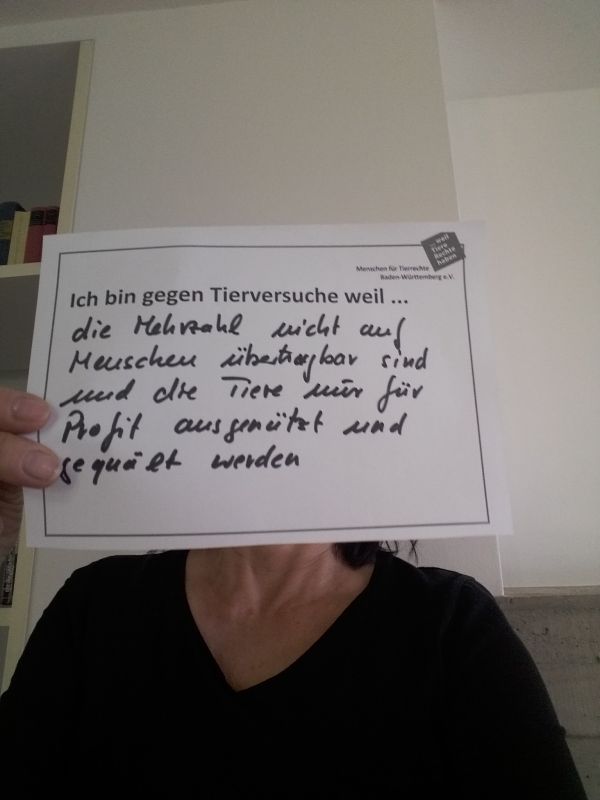 ... weil
Tiere
Rechte
haben
Menschen für Tierrechte
Baden-Württemberg e.V.
Ich bin gegen Tierversuche weil ...
die Mehrzahl nicht auf
Menschen übertragbar sind
und die Tiere nur für
Profit ausgenützt und
gequält werden